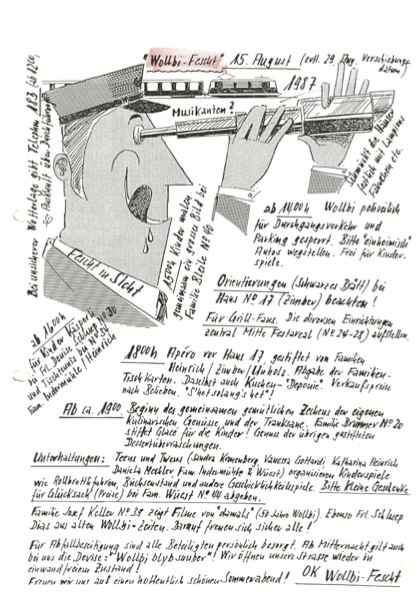 "Wollbi-Fescht" 15. August (evtl. 29. Aug. Verschiebungsdatum)
1987
Musikanten?
Bei unsicherer Wetterlage gibt Telephon 183 (ab 1200)
Auskunft über Durchführung
schmückt die Häuser
festlich mit Lampions
Fähnchen etc.
Fescht in Sicht
1500h Kinder malen
gemeinsam ein grosses Bild bei
Familie Bleile No 40
ab 1600h
für Kinder Kasperli
bei Frl. Denise Schlup No 30
und Tischtennis bei No 34
Fam. Indermühle/Heinrich
ab 1400h Wollbi polizeilich
für Durchgangsverkehr und
Parking gesperrt. Bitte "einheimische"
Autos wegstellen. Frei für Kinder-
spiele.
Orientierungen (Schwarzes Brätt) bei
Haus No 17 (Zimber) beachten!
Für Grill-Fans. Die diversen Einrichtungen
zentral Mitte Festareal (No 24-28) aufstellen.
1800h Apéro vor Haus 17, gestiftet von Familien
Heinrich / Zimber / Umholz. Abgabe der Familien-
Tischkarten. Daselbst auch Kuchen-"Deponie". Verkaufspreise
nach Belieben. "S'het solang's het"!
Ab ca. 1900 Beginn des gemeinsamen gemütlichen Zechens der eigenen
Kulinarischen Genüsse, und der Tranksame. Familie Brunner No 20
stiftet Glacé für die Kinder! Genuss der übrigen gestifteten
Dessertüberraschungen.
Unterhaltungen: Teens und Twens (Sandra Kronenberg Vanessa Gottardi, Katharina Heinrich
Daniela Mebler Fam. Indermühle & Wüest) organisieren Kinderspiele
wie Rollbrettfahren, Büchsenstand und andere Geschicklichkeitsspiele. Bitte kleine Geschenke
für Glücksack (Preise) bei Fam. Wüest No 44 abgeben.
Familie Josef Keller No 38 zeigt Filme von "damals" (50 Jahre Wollbi). Ebenso Frl. Schluep
Dias aus alten Wollbi-Zeiten. Darauf freuen sich sicher alle!
Für Abfallbeseitigung sind alle Beteiligten persönlich besorgt. Ab Mitternacht gilt auch
bei uns die Devise: "Wollbi blyb suuber"! Wir öffnen unsere Strasse wieder in
einwandfreiem Zustand!
Freuen wir uns auf einen hoffentlich schönen Sommerabend! OK Wollbi-Fescht